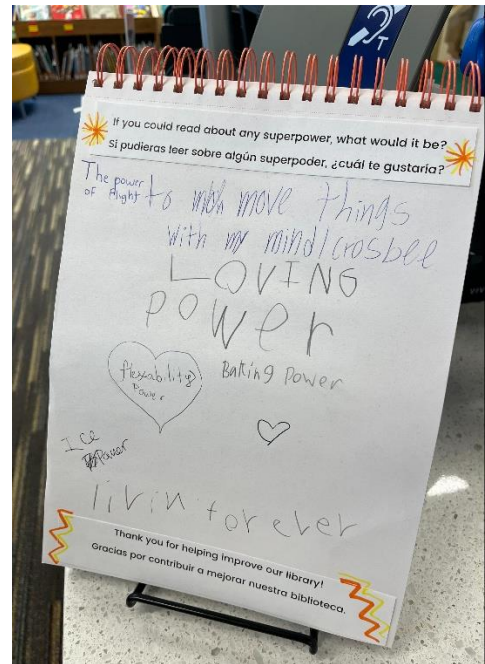 T
If you could read about any superpower, what would it be?
Si pudieras leer sobre algún superpoder, ¿cuál te gustaría?
The power
of flight
to move things
with my mind/crosbee
LOVING
power
flexability
Power
Baking Power
Ice
Power
livin forever
Thank you for helping improve our library!
Gracias por contribuir a mejorar nuestra biblioteca.